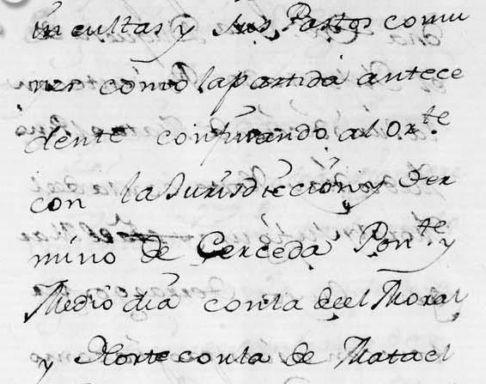 incultas y sus Pastos comu
nes como la partida antece
dente confinando al Orte
con la Jurisdiccion y Ter
mino de Cerceda Ponte y
Medio dia con la de el Moral
y Norte con la de Matael